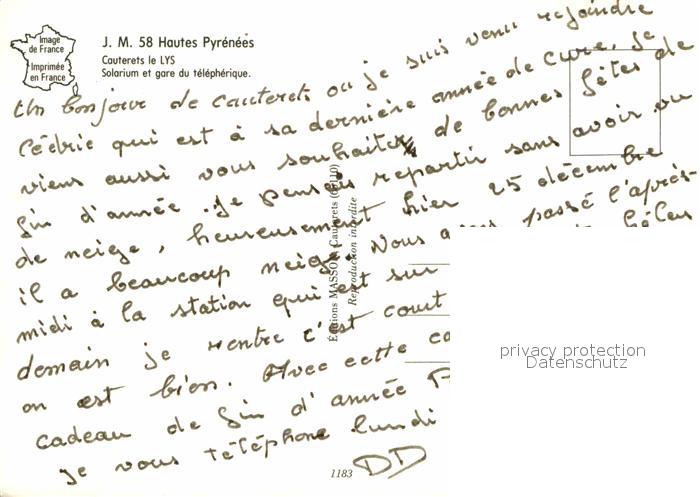 Image
de France
Imprimée
en France
J. M. 58 Hautes Pyrénées
Cauterets le LYS
Solarium et gare du téléphérique.
Un bonjour de cauterets ou je suis venu rejoindre
Cédric qui est à sa dernière année de cure, je
viens aussi vous souhaiter de bonnes fêtes de
fin d'année. Je pensais repartir sans avoir vu
de neige, heureusement hier 25 décembre
il a beaucoup neigé. Nous avons passé l'après-
midi à la station qui est sur fêtes
demain je rentre c'est court
on est bien. Avec cette ca
cadeau de fin d'année
je vous téléphone lundi
DD
Editions MASSON Cauterets
Reproduction interdite
1183
privacy protection
Datenschutz